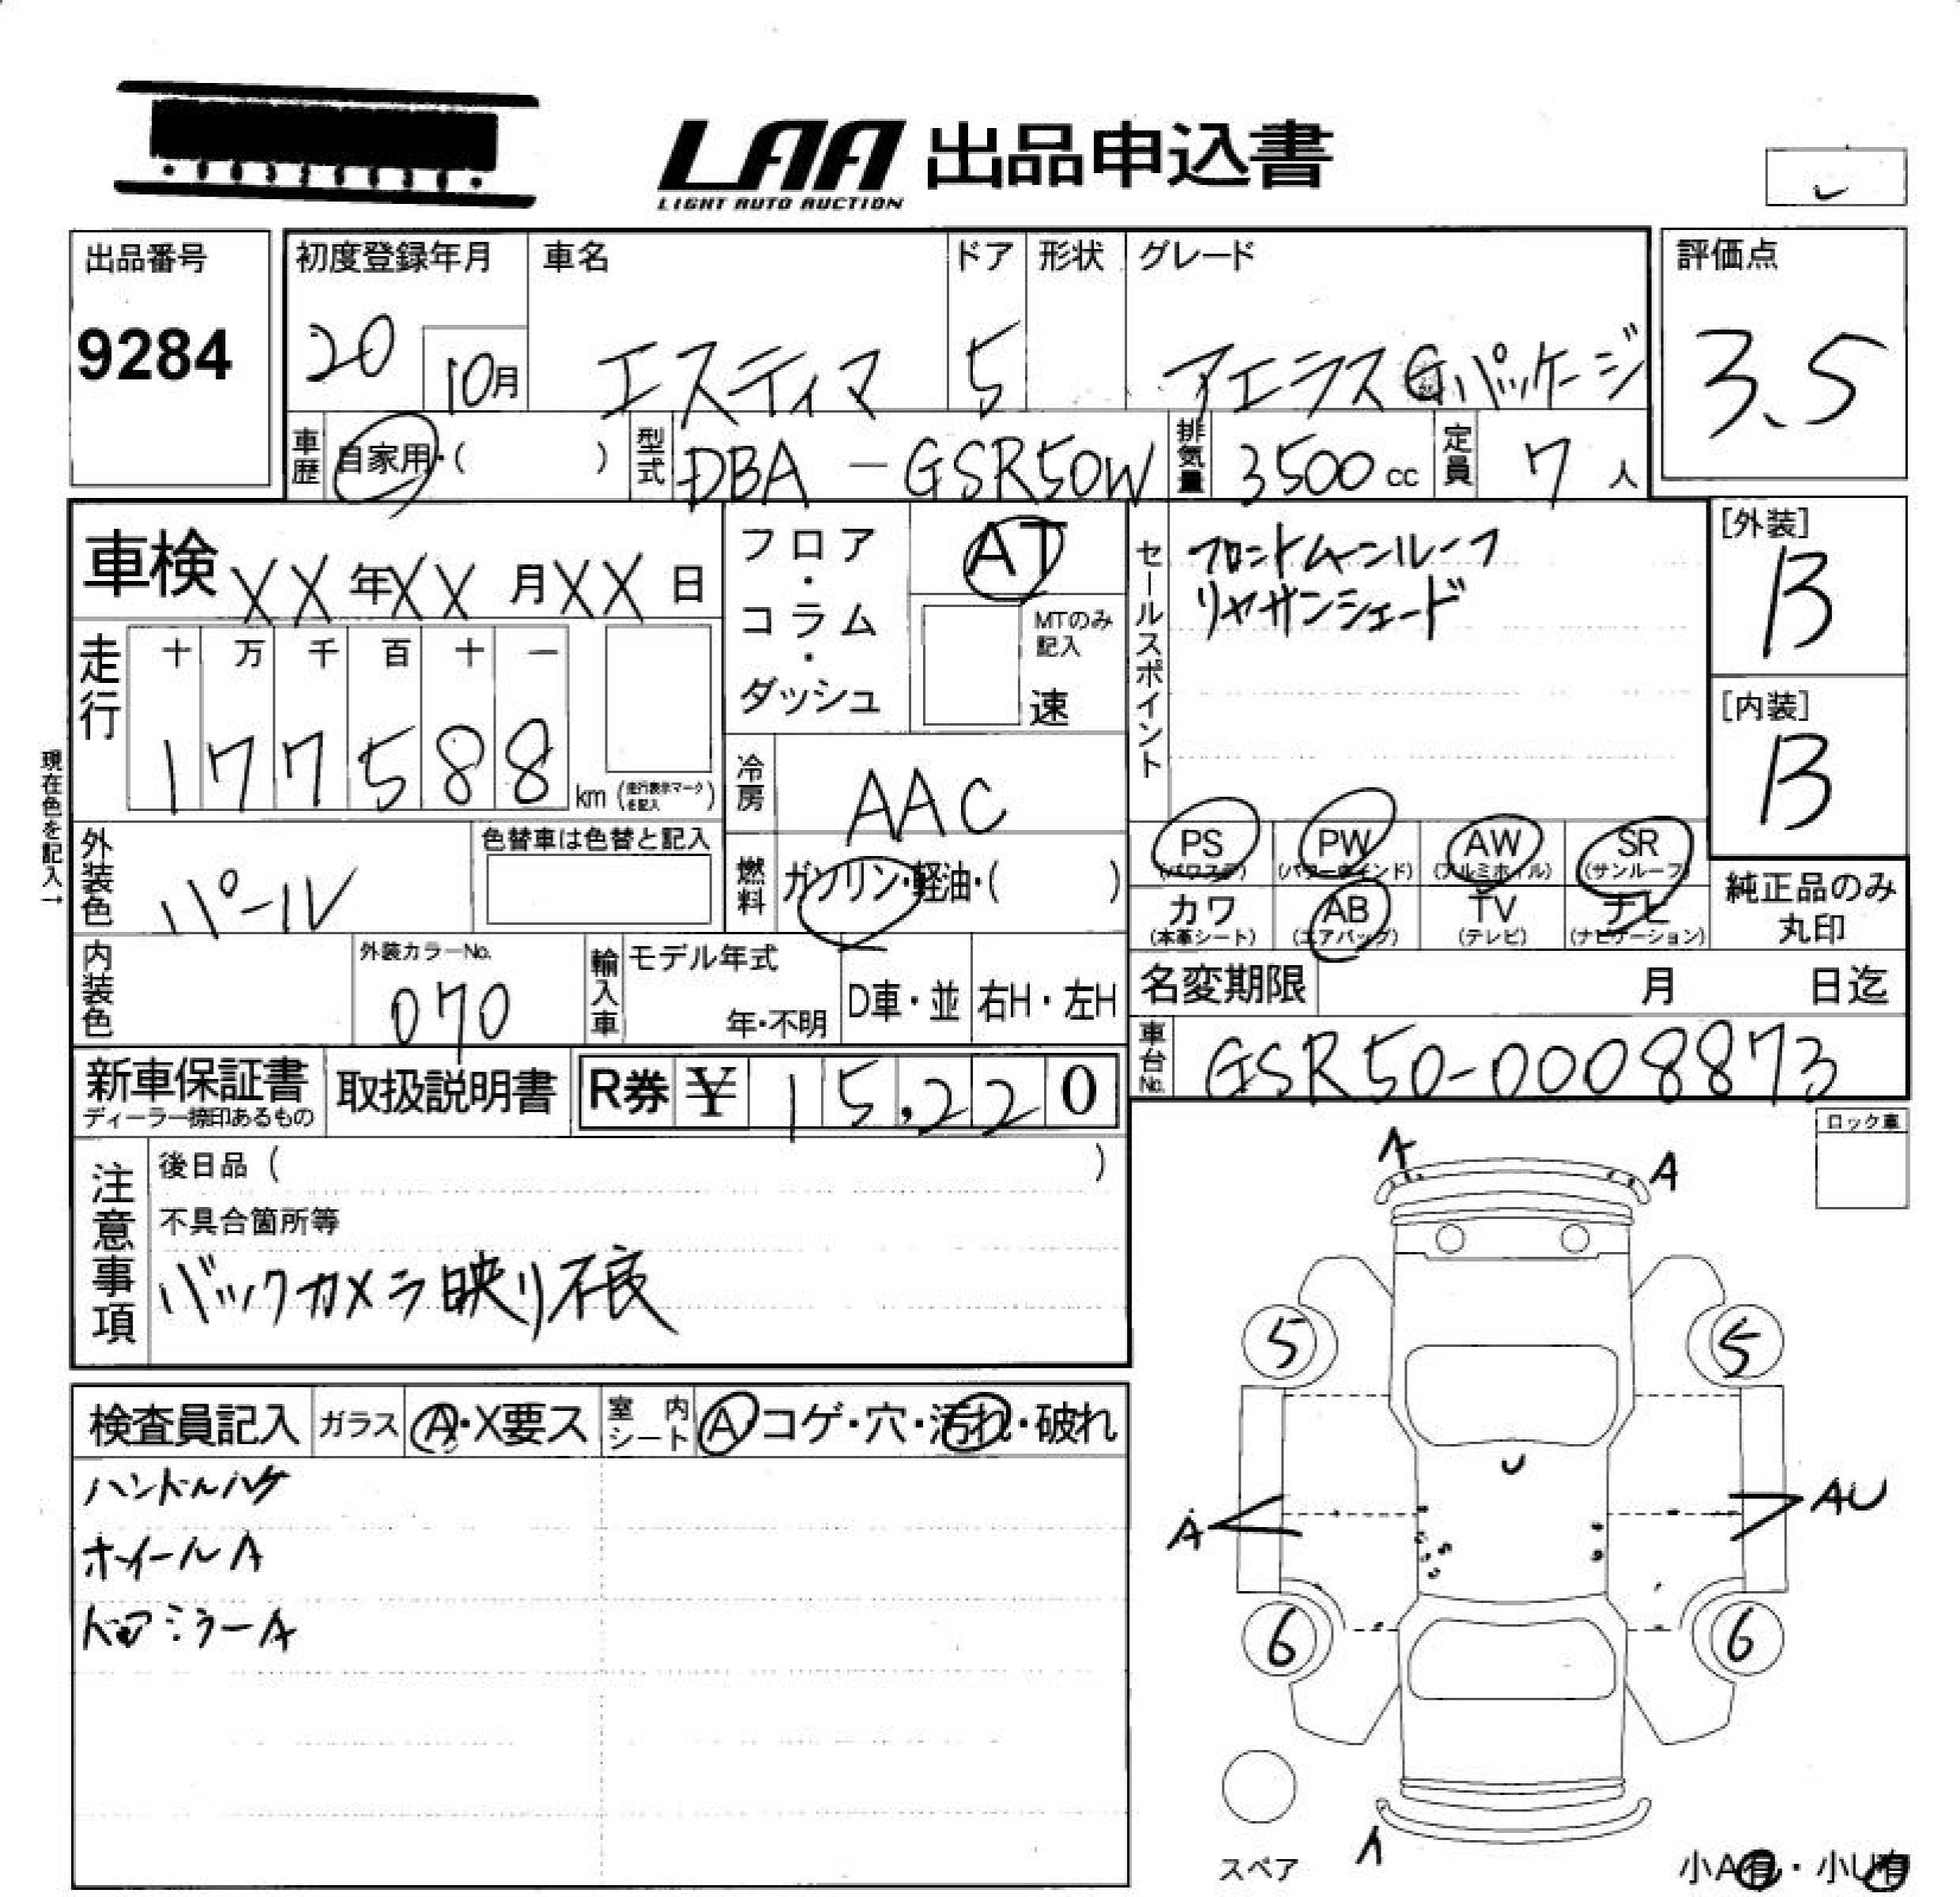 LAA 出品申込書
LIGHT AUTO AUCTION
出品番号
9284
初度登録年月
20 10月
車名
エスティマ
ドア
5
形状
グレード
アエラスGパッケージ
評価点
3.5
車歴
自家用・( )
型式
DBA - GSR50W
排気量
3500 cc
定員
7 人
車検 XX年XX月XX日
走行
十 万 千 百 十 一
1 7 7 5 8 8 km (走行表示マークを記入)
現在色を記入→
外装色
パール
色替車は色替と記入
内装色
外装カラーNo.
070
フロア・コラム・ダッシュ
AT
MTのみ記入
速
冷房
AAC
燃料
ガソリン・軽油・( )
輸入車
モデル年式
年・不明
D車・並
右H・左H
セールスポイント
フロントムーンルーフ
リヤサンシェード
[外装]
B
[内装]
B
PS (パワステ)
PW (パワーウインド)
AW (アルミホイル)
SR (サンルーフ)
カワ (本革シート)
AB (エアバック)
TV (テレビ)
ナビ (ナビゲーション)
純正品のみ
丸印
名変期限 月 日迄
車台No.
GSR50-0008873
新車保証書
ディーラー捺印あるもの
取扱説明書
R券 ¥ 15,220
注意事項
後日品 ( )
不具合箇所等
バックカメラ映り不良
ロック車
検査員記入
ガラス
A・X要ス
室内シート
A・コゲ・穴・汚れ・破れ
ハンドルハゲ
ホイールA
ドアミラーA
A
A
5
5
U
A
AU
6
6
スペア
A
小A有・小U有